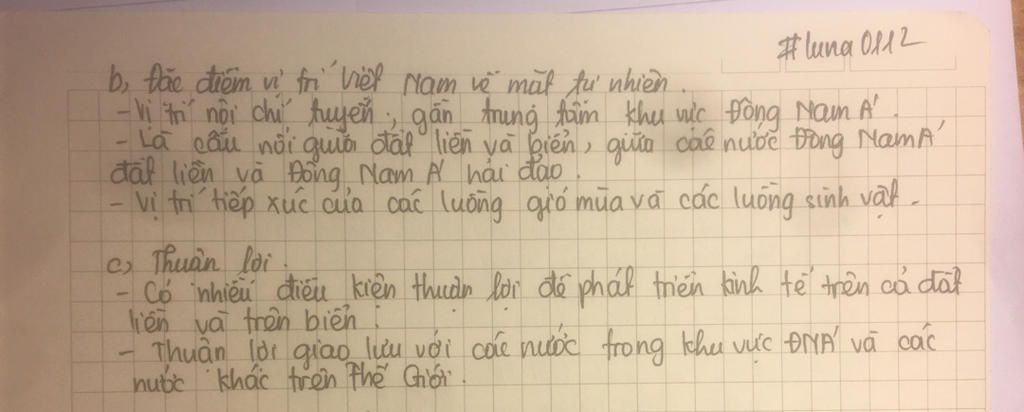 #luna0112
b, Đặc điểm vị trí Việt Nam về mặt tự nhiên.
- Vị trí nội chí tuyến, gần trung tâm khu vực Đông Nam Á.
- Là cầu nối giữa đất liền và biển, giữa các nước Đông Nam Á
đất liền và Đông Nam Á hải đảo.
- Vị trí tiếp xúc của các luồng gió mùa và các luồng sinh vật.
c, Thuận lợi.
- Có nhiều điều kiện thuận lợi để phát triển kinh tế trên cả đất
liền và trên biển.
- Thuận lợi giao lưu với các nước trong khu vực ĐNÁ và các
nước khác trên Thế Giới.